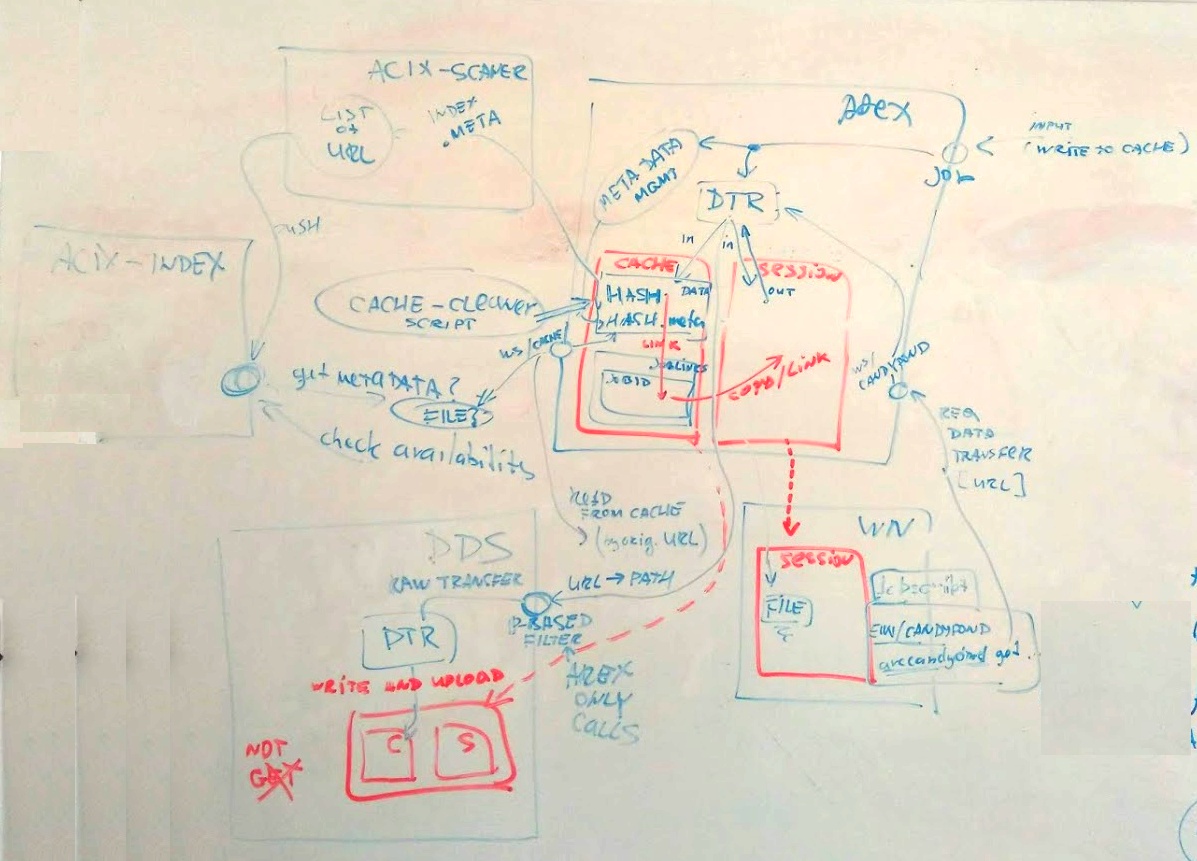 ACIX-SCANER
LIST
OF
URL
INDEX
.META
AREX
INPUT
(WRITE TO CACHE)
JOB
META DATA
MGMT
DTR
PUSH
ACIX-INDEX
in
in
OUT
CACHE
SESSION
HASH
DATA
HASH.meta
LINK
JOBLINKS
JOBID
COPY/LINK
CACHE-CLEANER
SCRIPT
WS/CACHE/
WS/
CANDYPOND
get METADATA?
FILE?
check availabilities
REQ
DATA
TRANSFER
[URL]
READ
FROM CACHE
(by orig. URL)
DDS
RAW TRANSFER
URL → PATH
IP-BASED
FILTER
DTR
WRITE AND UPLOAD
AREX
ONLY
CALLS
C
S
NOT
GET
WN
SESSION
FILE
Jobscript
ENV/CANDYPOND
arccandypond get..